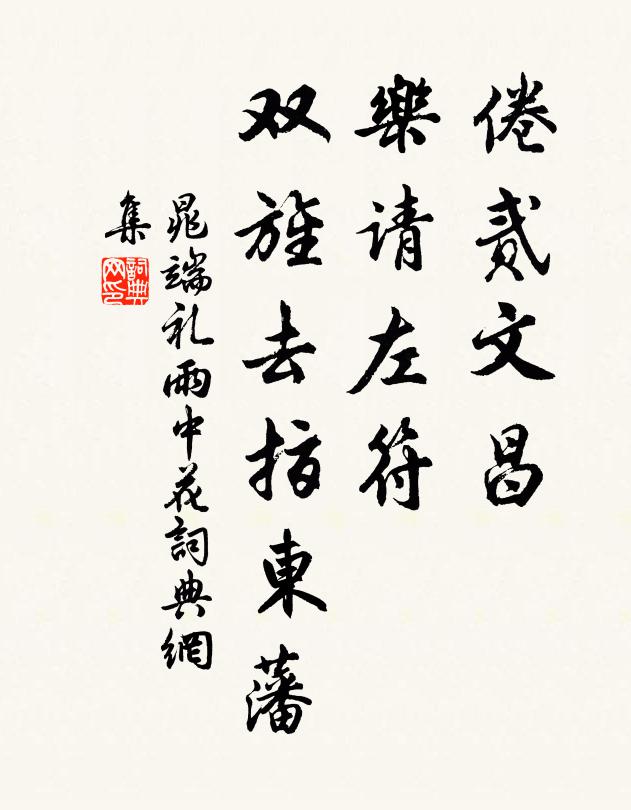 倦贰文昌
樂请左符
双旌去指東藩
晁端礼雨中花詞典網
集
詞典網印